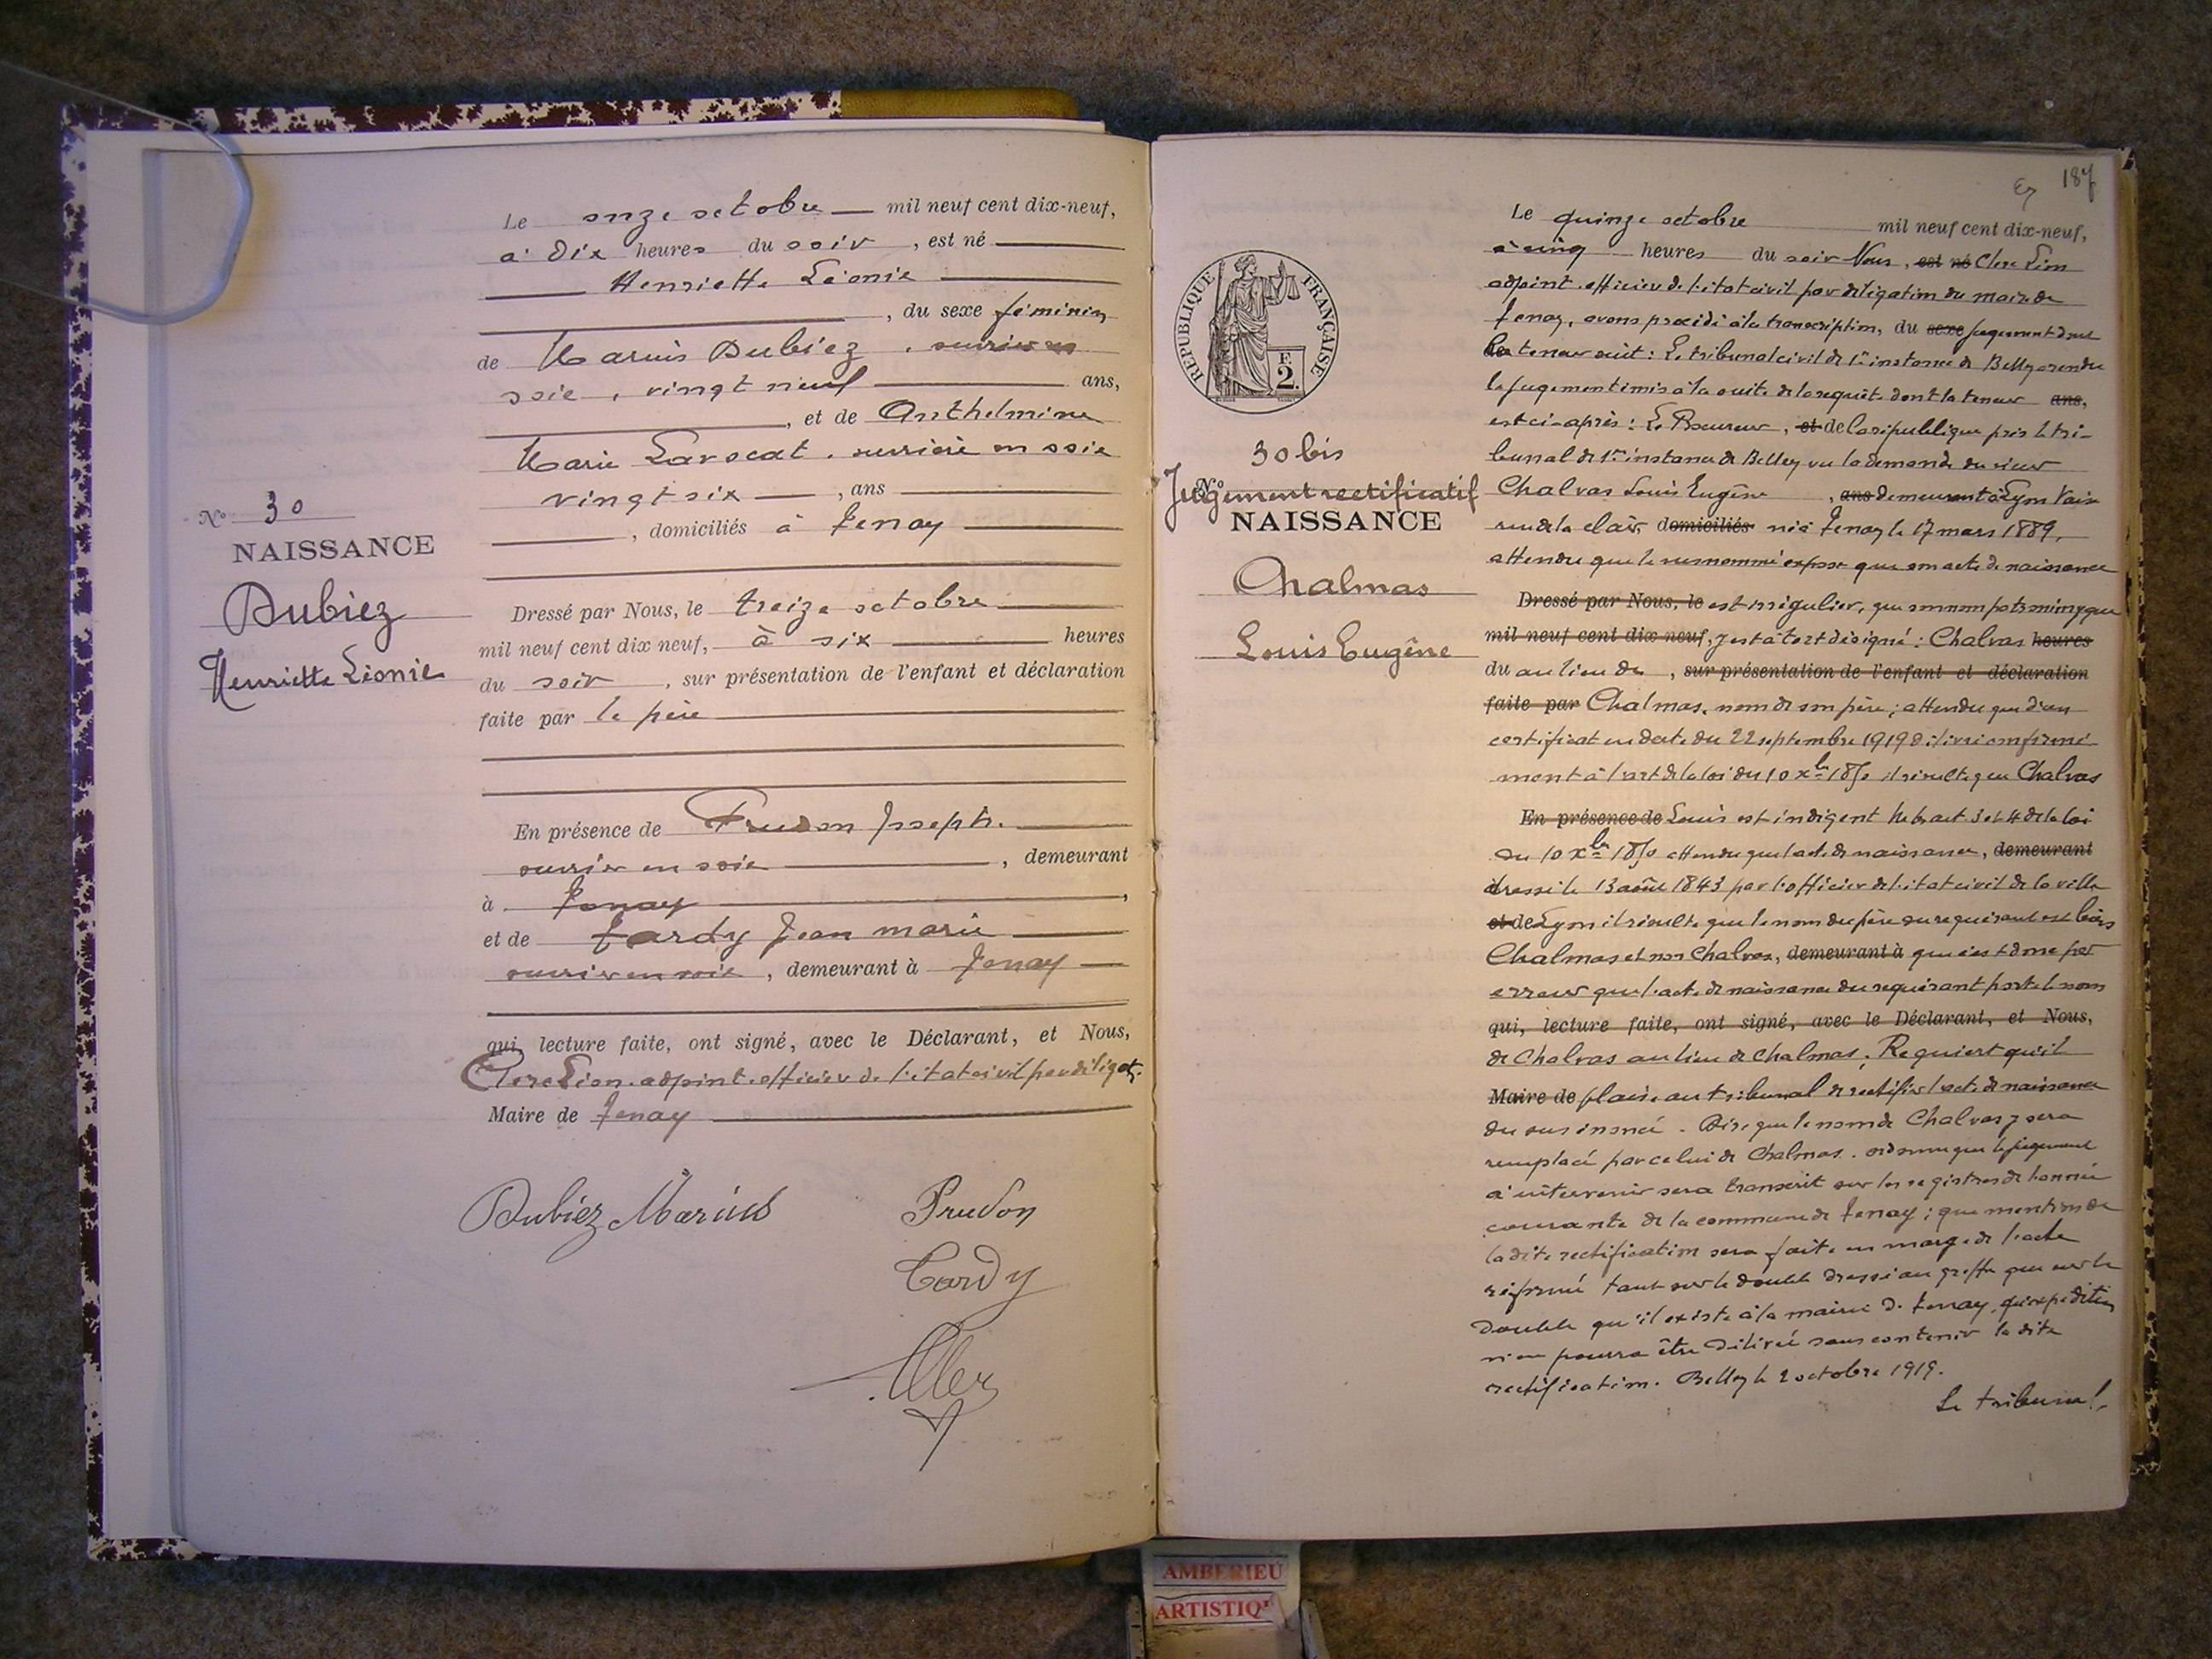 Le onze octobre mil neuf cent dix-neuf,
à dix heures du soir, est né
Henriette Léonie
, du sexe féminin
de Marius Dubiez, ouvrier en
soie, vingt neuf ans,
, et de Anthelmine
Marie Lavocat. ouvrière en soie
vingt six, ans
, domiciliés à Tenay
N° 30
NAISSANCE
Dubiez
Henriette Léonie
Dressé par Nous, le treize octobre
mil neuf cent dix neuf, à six heures
du soir, sur présentation de l'enfant et déclaration
faite par le père
En présence de Prudon Joseph.
ouvrier en soie, demeurant
à Tenay,
et de Tardy Jean marie
ouvrier en soie, demeurant à Tenay
qui, lecture faite, ont signé, avec le Déclarant, et Nous,
Clerc Léon. adjoint. officier de l'état civil par délégat.
Maire de Tenay
Dubiez Marius Prudon
Tardy
187
RÉPUBLIQUE FRANÇAISE
F.
2.
30 bis
N°
Jugement rectificatif
NAISSANCE
Chalmas
Louis Eugêne
Le quinze octobre mil neuf cent dix-neuf,
à cinq heures du soir Nous, est né Clerc Léon
adjoint. officier de l'état civil par délégation du maire de
Tenay, avons procédé à la transcription, du sexe jugement dont
la teneur suit: Le tribunal civil de 1re instance de Belley a rendu
le jugement émis à la suite de la requête dont la teneur ans,
est ci-après: Le Procureur, et de la république près le tri-
bunal de 1re instance de Belley vu la demande du sieur
Chalvas Louis Eugêne, ans demeurant à Lyon Vaise
rue de la claire, domiciliés né à Tenay le 17 mars 1889,
attendu que le susnommé expose que son acte de naissance
Dressé par Nous, le est irrégulier, que son nom patronimyque
mil neuf cent dix neuf, y est à tort désigné: Chalvas heures
du au lieu de, sur présentation de l'enfant et déclaration
faite par Chalmas, nom de son père; attendu que d'un
certificat en date du 22 septembre 1919 délivré conformé-
ment à l'art de la loi du 10 xbre 1850 il résulte que Chalvas
En présence de Louis est indigent art. 3 et 4 de la loi
du 10 xbre 1850 attendu que l'acte de naissance, demeurant
dressé le 13 août 1843 par l'officier de l'état civil de la ville
et de Lyon il résulte que le nom du père du requérant est bien
Chalmas et non Chalvas, demeurant à que c'est donc par
erreur que l'acte de naissance du requérant porte le nom
qui, lecture faite, ont signé, avec le Déclarant, et Nous,
de Chalvas au lieu de Chalmas. Requiert qu'il
Maire de plaise au tribunal de rectifier l'acte de naissance
du sus énoncé. Dire que le nom de Chalvas y sera
remplacé par celui de Chalmas. ordonne que le jugement
à intervenir sera transcrit sur les registres de l'année
courante de la commune de Tenay; que mention de
la dite rectification sera faite en marge de l'acte
réformé tant sur le double dressé au greffe que sur le
double qu'il existe à la mairie de Tenay, qu'expédition
n'en pourra être délivrée sans contenir la dite
rectification. Belley le 2 octobre 1919.
Le tribunal,
AMBERIEU
ARTISTIQ